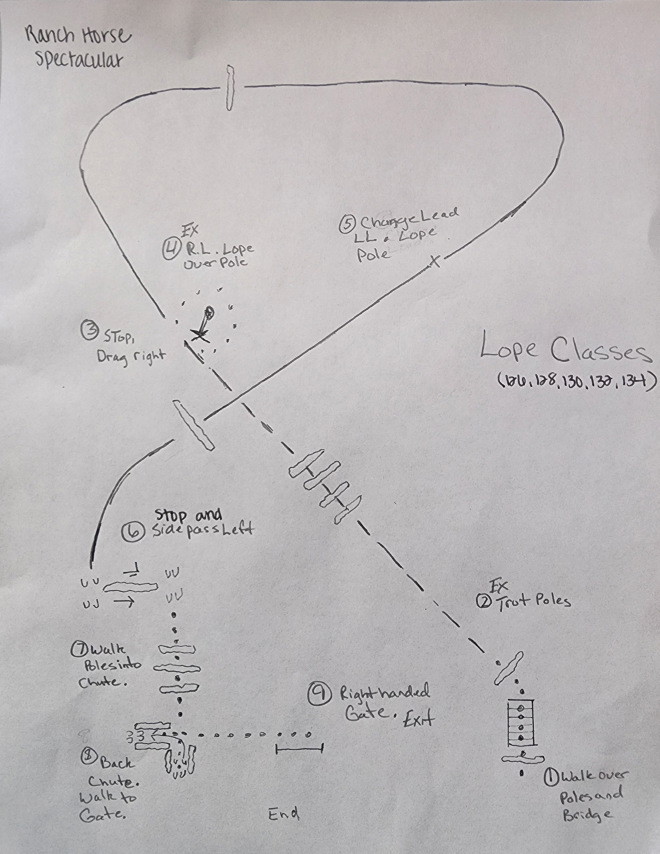 Ranch Horse
Spectacular
EX
④ R.L. Lope
over Pole
⑤ Change Lead
LL. Lope
Pole
③ Stop,
Drag right
Lope Classes
(126, 128, 130, 132, 134)
Stop and
⑥ Sidepass Left
EX
② Trot Poles
⑦ Walk
Poles into
Chute.
⑨ Right handed
Gate. Exit
⑧ Back
Chute.
Walk to
Gate.
① Walk over
Poles and
Bridge
End